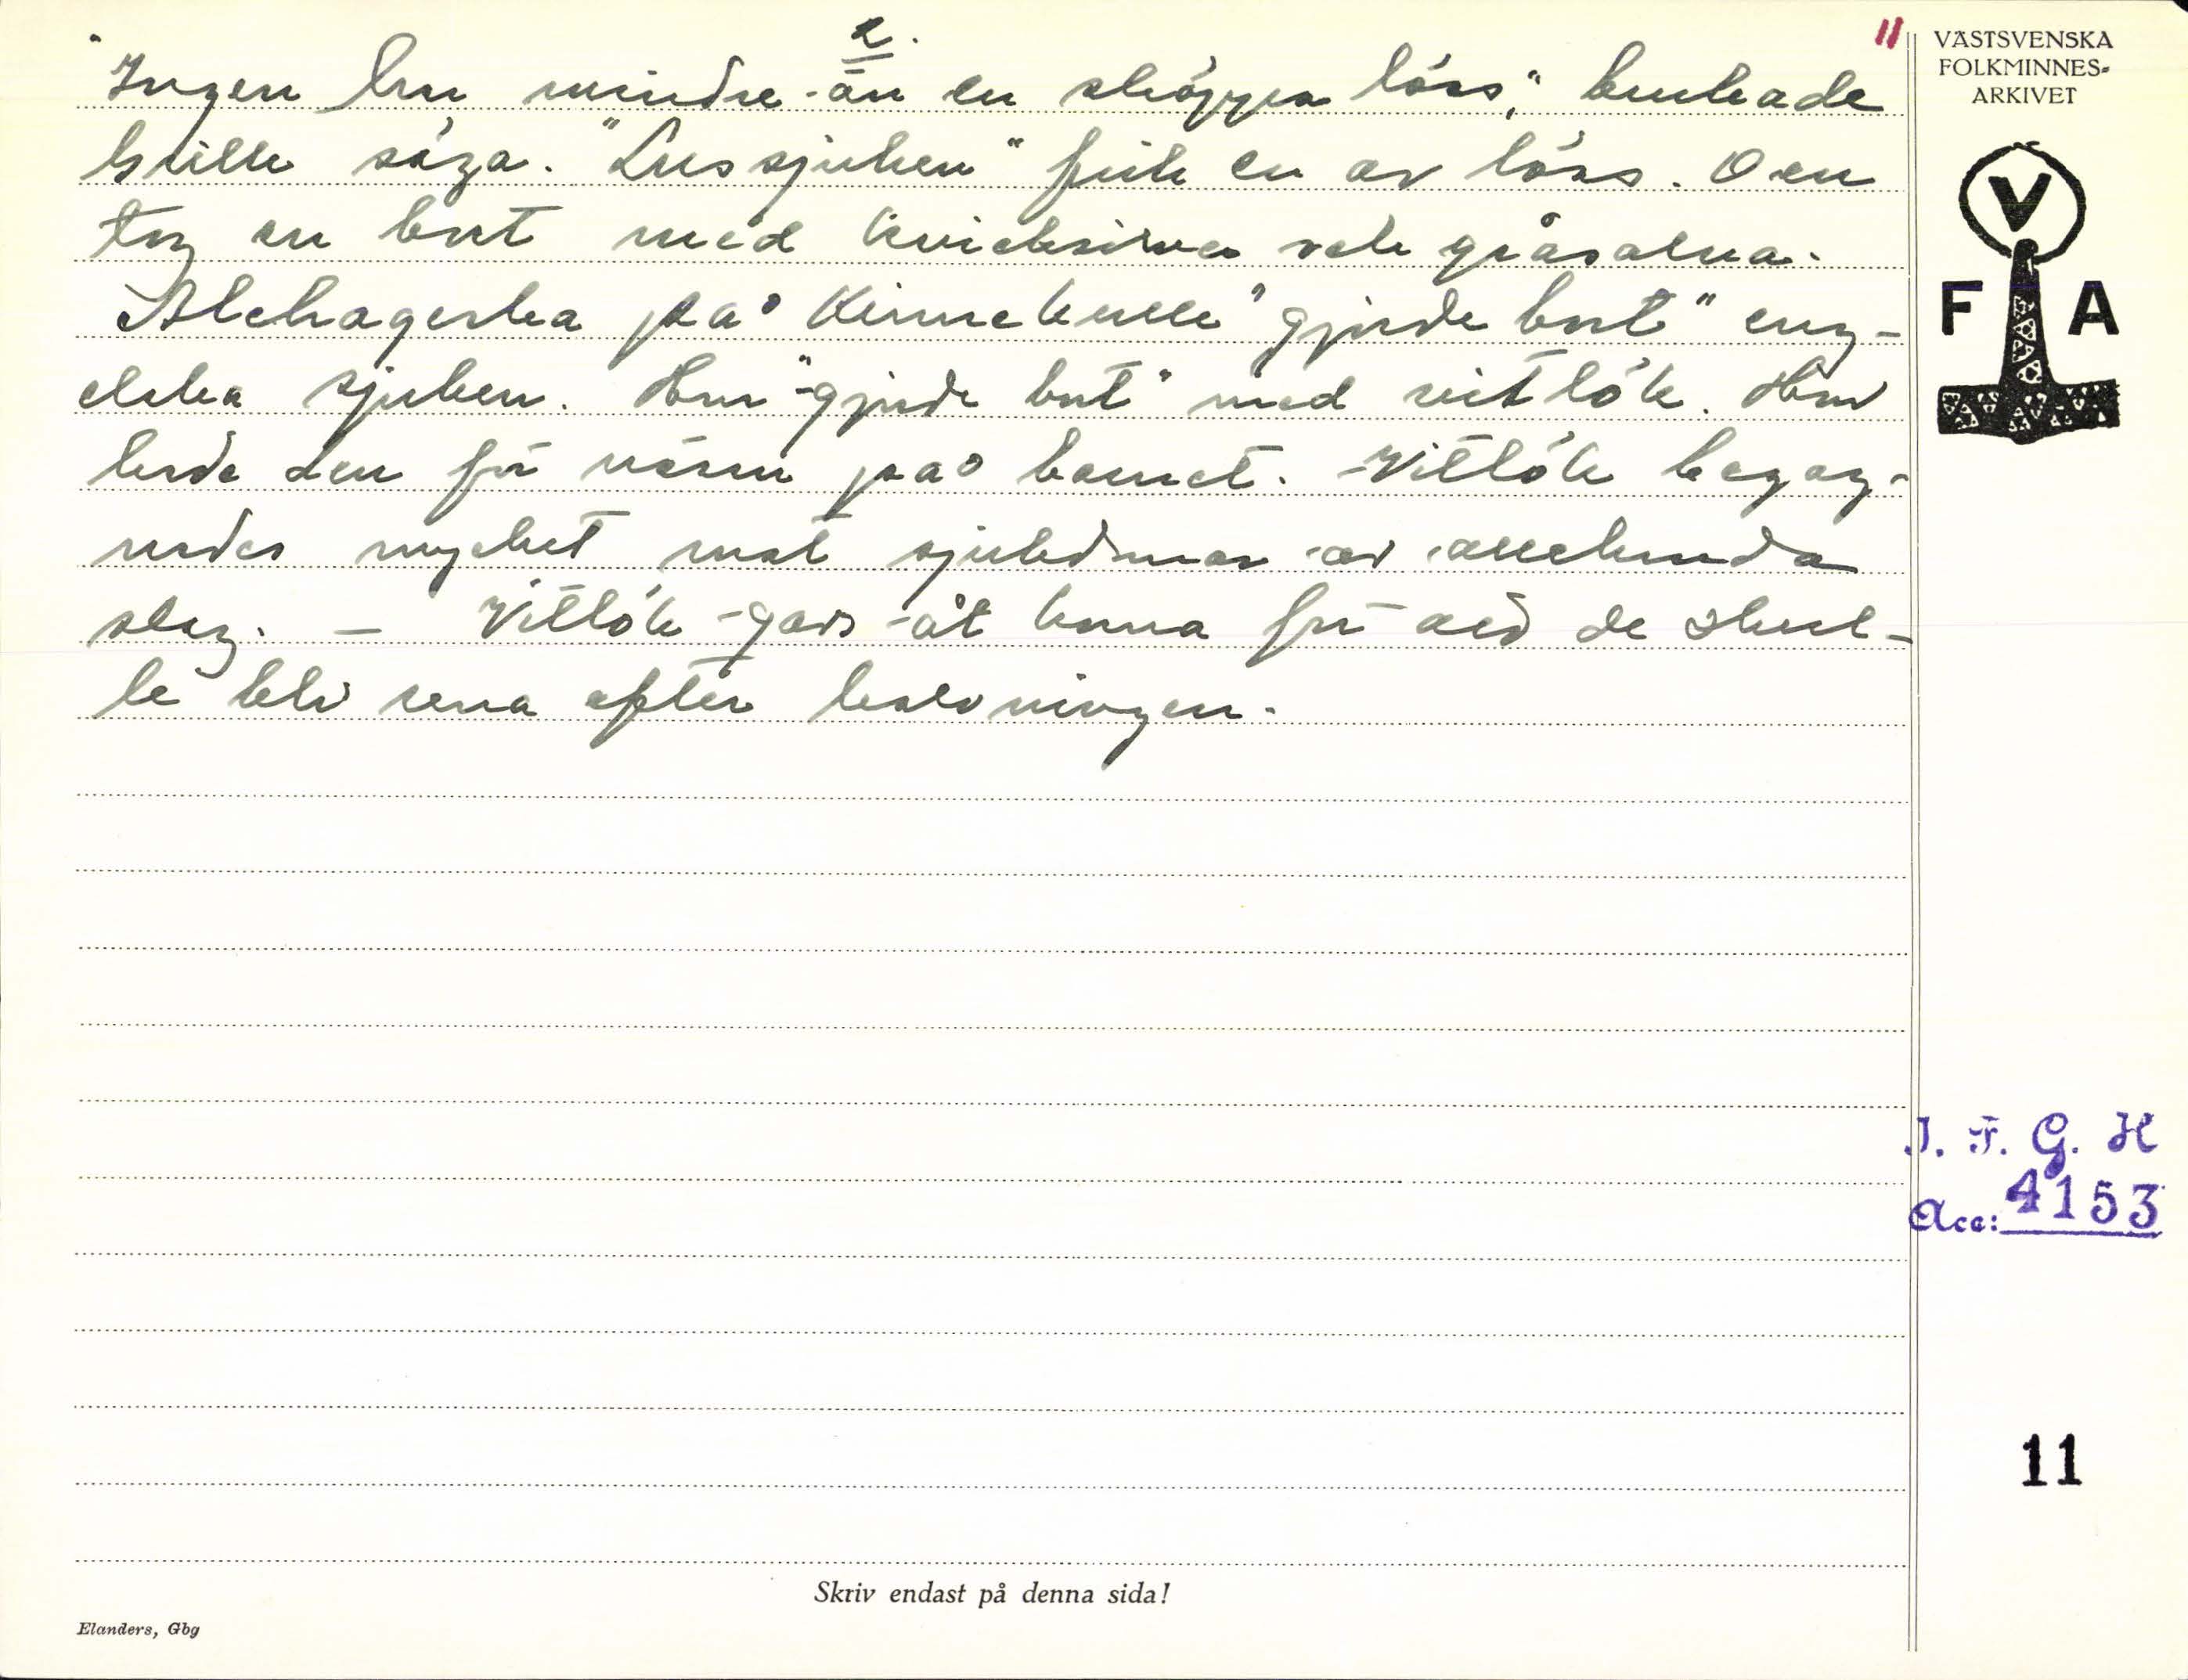 2.
11
"Ingen hru mindre än en skäppa löss", brukade
hrille säga. "Lussjuken" fick en av löss. Den
tog en bort med kvicksilver och gråsalva.
Alehagerska på Kinnekulle "gjorde bort" eng-
elska sjuken. Hon "gjorde bort" med vitlök. Hon
lade den för värm på barnet. Vitlök begag-
nades mycket mot sjukdomar av allehanda
slag. – Vitlök gavs åt korna för att de skul-
le bli rena efter kalvningen.
VÄSTSVENSKA
FOLKMINNES-
ARKIVET
V
F A
I. F. G. H
Acc: 4153
11
Skriv endast på denna sida!
Elanders, Gbg